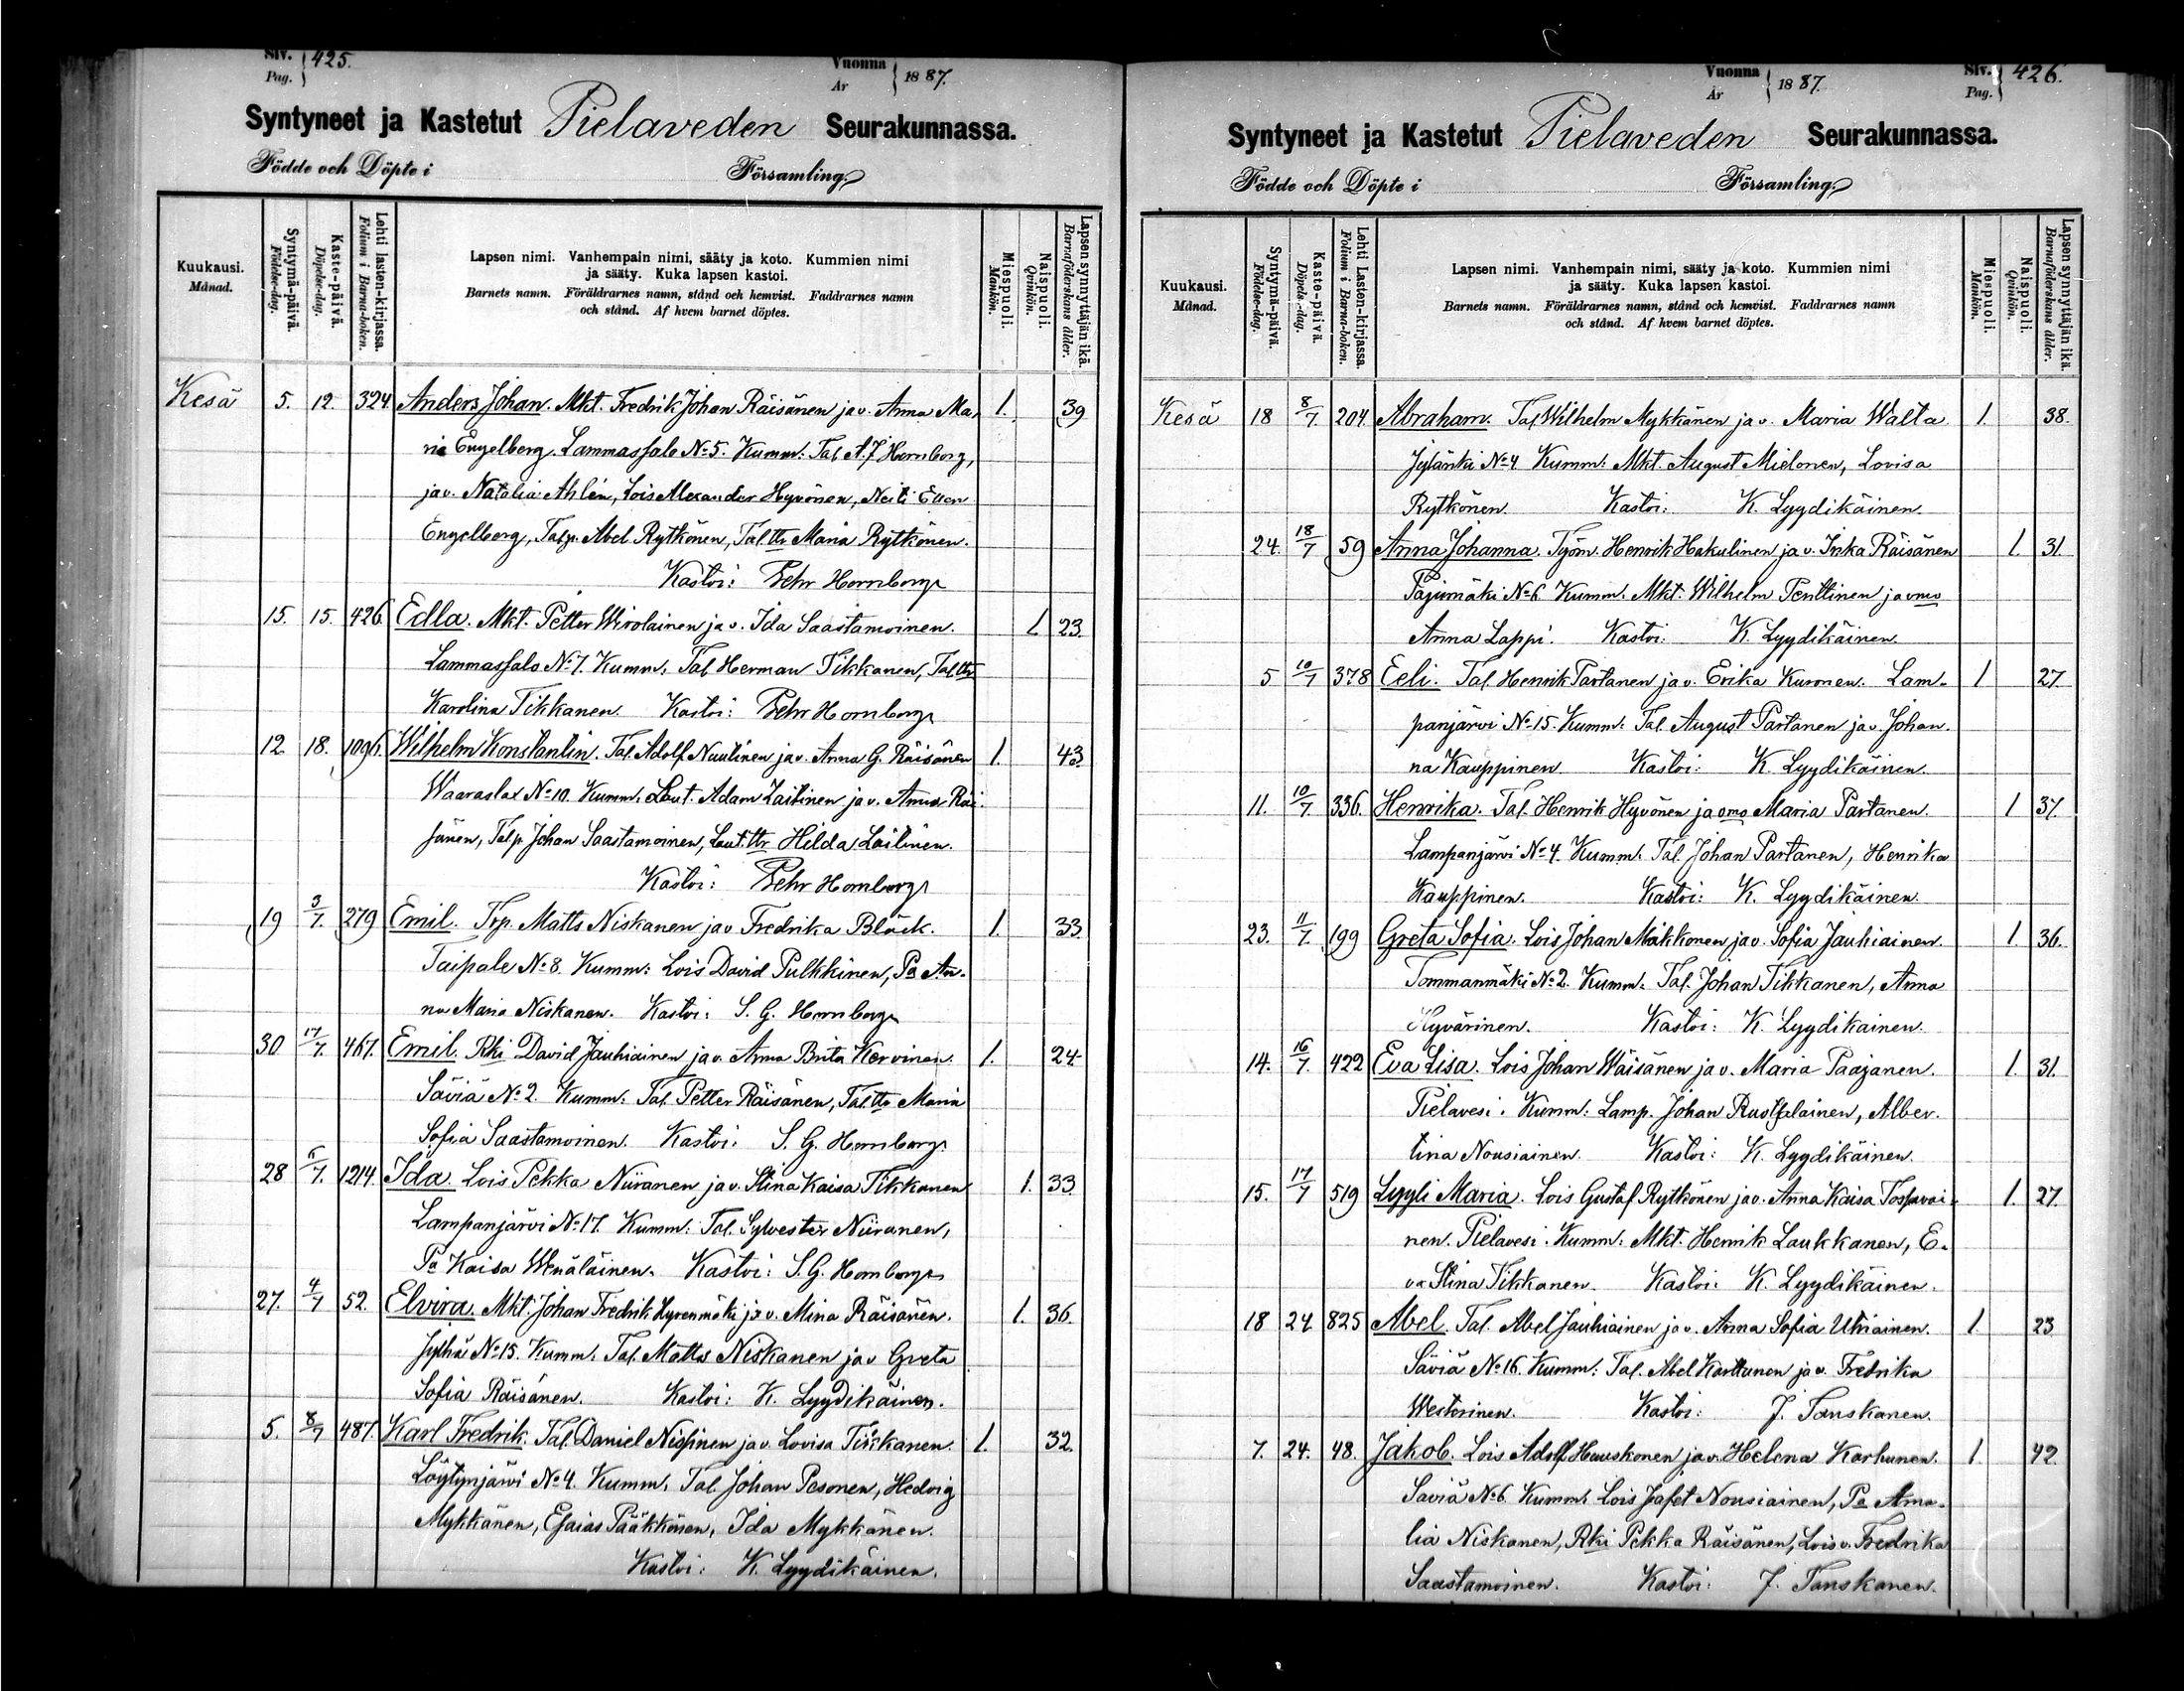 Siv. Pag. 425.
Vuonna År 1887.
Syntyneet ja Kastetut Pielaveden Seurakunnassa.
Födde och Döpte i Församling.
Kuukausi. Månad.
Syntymä-päivä. Födelse-dag.
Kaste-päivä. Döpelse-dag.
Lehti lasten-kirjassa. Folium i Barna-boken.
Lapsen nimi. Vanhempain nimi, sääty ja koto. Kummien nimi
ja sääty. Kuka lapsen kastoi.
Barnets namn. Föräldrarnes namn, stånd och hemvist. Faddrarnes namn
och stånd. Af hvem barnet döptes.
Miespuoli. Mankön.
Naispuoli. Qvinkön.
Lapsen synnyttäjän ikä. Barnaföderskans ålder.
Kesä 5. 12. 324 Anders Johan. Mkt. Fredrik Johan Räisänen ja v. Anna Ma- 1. 39
ria Engelberg. Lammassalo No 5. Kumm: Tal. A. J Hornborg,
ja v. Natalia Ahlén, Lois Alexander Hyvönen, Neiti Ellen
Engelberg, Talp. Abel Rytkönen, Tal.ttr Maria Rytkönen.
Kastoi: Pehr Hornborg
15. 15. 426 Edla. Mkt. Petter Wirolainen ja v. Ida Saastamoinen. 1 23.
Lammassalo No 7. Kumm: Tal Herman Tikkanen, Tal.ttr
Karolina Tikkanen. Kastoi: Pehr Hornborg
12 18. 1096. Wilhelm Konstantin. Tal. Adolf Nuutinen ja v. Anna G. Räisänen 1. 43
Waaraslax No 10. Kumm. Laut. Adam Laitinen ja v. Anna Räi-
sänen, Talp Johan Saastamoinen, Laut.ttr Hilda Laitinen.
Kastoi: Pehr Hornborg
19 3/7. 279 Emil. Trp. Matts Niskanen ja v Fredrika Bläck. 1. 33.
Taipale No 8. Kumm: Lois David Pulkkinen, Pa An-
na Maria Niskanen. Kastoi: S. G. Hornborg
30 17/7. 467. Emil. Rki David Jauhiainen ja v. Anna Brita Kervinen. 1. 24
Säviä No 2. Kumm: Tal. Petter Räisänen, Tal.ttr Maria
Sofia Saastamoinen. Kastoi: S. G. Hornborg
28 /7. 1214 Ida. Lois Pekka Niiranen ja v. Stina Kaisa Tikkanen 1. 33.
Lampanjärvi No 17. Kumm: Tal. Sylvester Niiranen,
Pa Kaisa Wenäläinen. Kastoi: S. G. Hornborg
27. 4/7 52. Elvira. Mkt. Johan Fredrik Hyvenmäki ja v. Mina Räisänen. 1. 36.
Jylhä No 15. Kumm: Tal. Matts Niskanen ja v Greta
Sofia Räisänen. Kastoi: K. Lyydikäinen.
5. 8/7 487. Karl Fredrik. Tal. Daniel Nissinen ja v. Lovisa Tikkanen. 1. 32.
Löytynjärvi No 4. Kumm. Tal. Johan Pesonen, Hedvig
Mykkänen, Esaias Pääkkönen, Ida Mykkänen.
Kastoi: K. Lyydikäinen.
Vuonna År 1887.
Siv. Pag. 426.
Syntyneet ja Kastetut Pielaveden Seurakunnassa.
Födde och Döpte i Församling.
Kuukausi. Månad.
Syntymä-päivä. Födelse-dag.
Kaste-päivä. Döpels-dag.
Lehti Lasten-kirjassa. Folium i Barna-boken.
Lapsen nimi. Vanhempain nimi, sääty ja koto. Kummien nimi
ja sääty. Kuka lapsen kastoi.
Barnets namn. Föräldrarnes namn, stånd och hemvist. Faddrarnes namn
och stånd. Af hvem barnet döptes.
Miespuoli. Mankön.
Naispuoli. Qvinkön.
Lapsen synnyttäjän ikä. Barnaföderskans ålder.
Kesä 18 8/7. 204. Abraham. Tal Wilhelm Mykkänen ja v. Maria Walta 1. 38.
Jylänki No 4 Kumm: Mkt. August Mielonen, Lovisa
Rytkönen. Kastoi: K. Lyydikäinen.
24. 18/7 59 Anna Johanna. Työm. Henrik Hakulinen ja v. Inka Räisänen 1. 31.
Pajumäki No 6. Kumm. Mkt. Wilhelm Penttinen ja vmo
Anna Lappi. Kastoi: K. Lyydikäinen.
5 10/7 378 Eeli. Tal. Henrik Partanen ja v. Erika Kuronen. Lam- 1 27.
panjärvi No 15. Kumm: Tal. August Partanen ja v. Johan-
na Kauppinen. Kastoi: K. Lyydikäinen.
11. 10/7. 336. Henrika. Tal. Henrik Hyvönen ja vmo Maria Partanen. 1 37.
Lampanjärvi No 4. Kumm. Tal. Johan Partanen, Henrika
Kauppinen. Kastoi: K. Lyydikäinen.
23. 11/7. 199 Greta Sofia. Lois Johan Mäkkonen ja v. Sofia Jauhiainen. 1. 36.
Tommanmäki No 2. Kumm. Tal. Johan Tikkanen, Anna
Hyvärinen. Kastoi: K. Lyydikainen.
14. 16/7. 422 Eva Lisa. Lois Johan Wäisänen ja v. Maria Paajanen. 1. 31.
Pielavesi. Kumm: Lamp. Johan Ruotsalainen, Alber-
tina Nousiainen. Kastoi: K. Lyydikäinen.
15. 17/7 519 Lyyli Maria. Lois Gustaf Rytkönen ja v. Anna Kaisa Tossavai- 1. 27.
nen. Pielavesi. Kumm: Mkt. Henrik Laukkanen, E-
va Stina Tikkanen. Kastoi: K. Lyydikäinen.
18 24 825 Abel. Tal. Abel Jauhiainen ja v. Anna Sofia Utriainen. 1. 23
Säviä No 16. Kumm: Tal. Abel Karttunen ja v. Fredrika
Westerinen. Kastoi: J. Tanskanen.
7. 24. 48. Jakob. Lois Adolf Hauskonen ja v. Helena Karhunen. 1. 42
Saviä No 6. Kumm: Lois Jafet Nousiainen, Pa Ama-
lia Niskanen, Rki Pekka Räisänen, Lois v. Fredrika
Saastamoinen. Kastoi: J. Tanskanen.